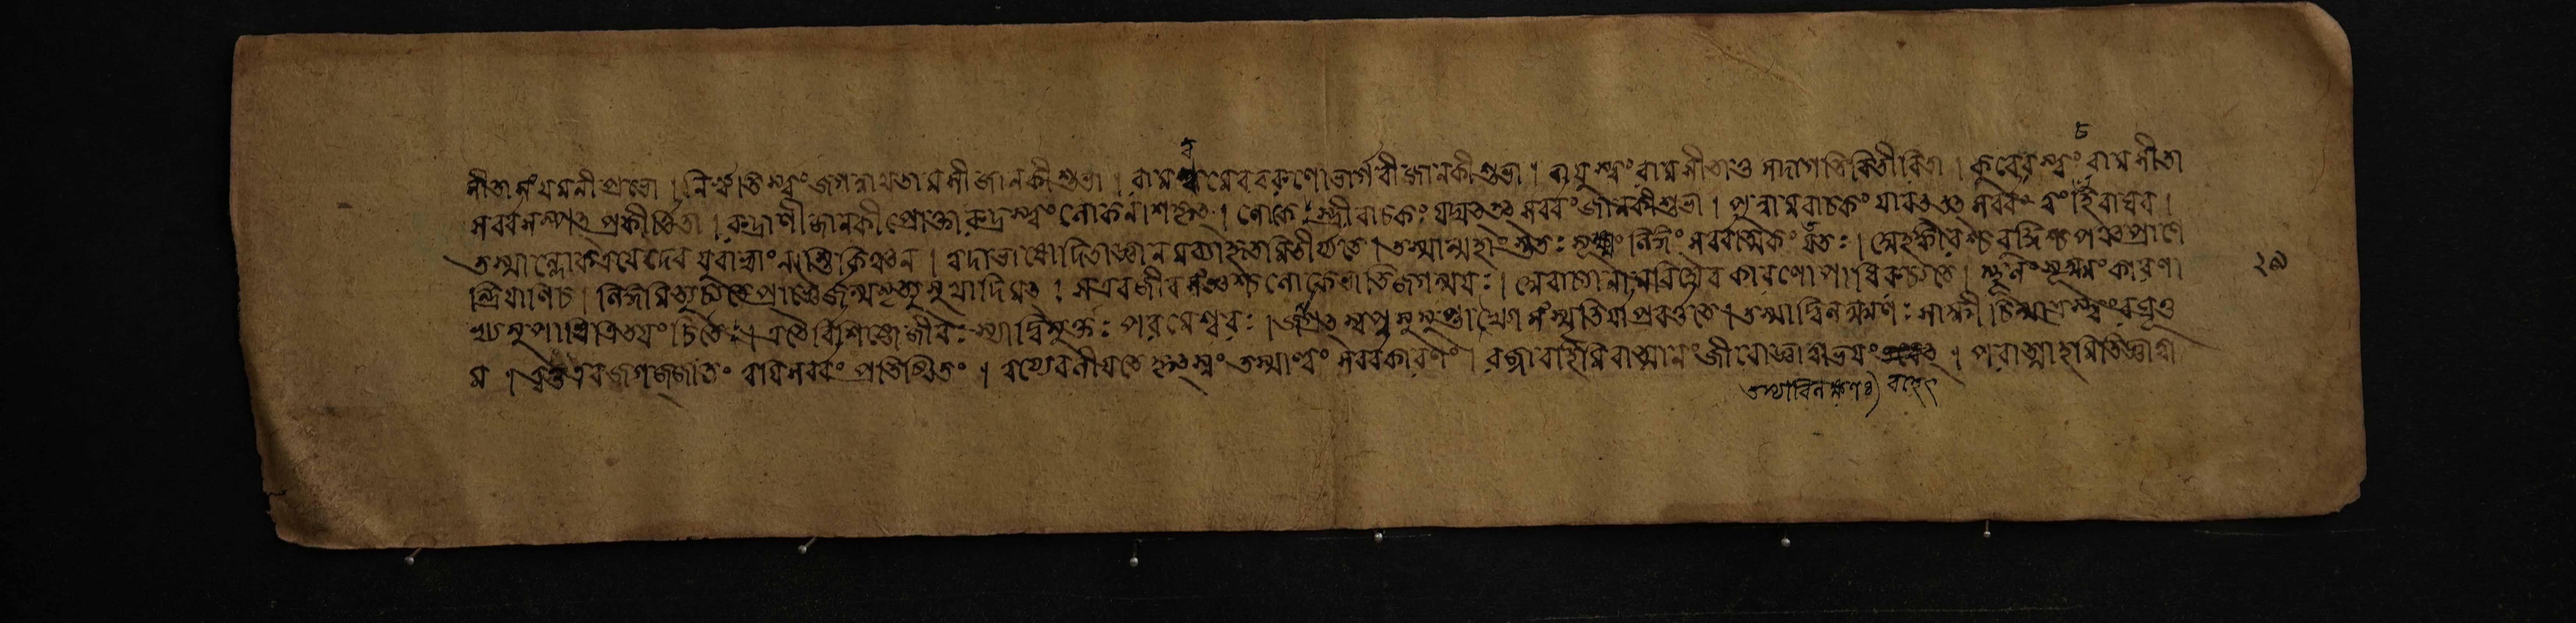 সীতা সংযমনী প্রভো । নিৰ্ঋতিস্ত্বং জগন্নাথ তামসী জানকী শুভা । ৰাম ত্বমেব বৰুণো ভার্গবী জানকী শুভা । বায়ুস্ত্বং ৰামসীতাতু সদাগতিৰিতীৰিতা । কুবেৰস্ত্বং ৰামসীতা
সর্ব্বসম্পৎ প্রকীর্ত্তিতা । ৰুদ্রাণী জানকী প্রোক্তা ৰুদ্রস্ত্বং লোকনাশকৃৎ । লোকে স্ত্রীবাচকং যাবৎ তৎ সর্ব্বং জানকী শুভা । পুন্নামবাচকং যাবৎ তৎ সর্ব্বং ত্বং হি ৰাঘব ।
তস্মাল্লোকত্রয়ে দেব যুবাভ্যাং নাস্তি কিঞ্চন । ত্বদাভাষোদিতাজ্ঞানমব্যাকৃতমিতীর্য্যতে । তস্মান্মহাংস্ততঃ সূত্রং লিঙ্গং সর্ব্বাত্মকং ততঃ । অহঙ্কাৰশ্চ বুদ্ধিশ্চ পঞ্চপ্রাণে
ন্দ্রিয়াণি চ । লিঙ্গমিত্যুচ্যতে প্রাজ্ঞৈর্জন্মমৃত্যুসুখাদিমৎ । স এব জীবসংজ্ঞশ্চ লোকে ভাতি জগন্ময়ঃ । অবাচ্যানাদ্যবিদ্যৈব কাৰণোপাধিৰুচ্যতে । স্থূলং সূক্ষ্মং কাৰণা
খ্যমুপাধিত্রিতয়ং চিতেঃ । এতৈর্বিশিষ্টো জীবঃ স্যাদ্বিমুক্তঃ পৰমেশ্বৰঃ । জাগ্রৎস্বপ্নসুসুপ্ত্যাখ্যা সংসৃতির্যা প্রবর্ত্ততে । তস্মাদ্বিলক্ষণঃ সাক্ষী চিন্মাত্রস্ত্বং ৰঘূত্ত
ম । ত্বত্ত এব জগজ্জাতং ত্বয়ি সর্ব্বং প্রতিষ্ঠিতং । ত্বয্যেব লীয়তে কৃৎস্নং তস্মাত্ত্বং সর্ব্বকাৰণং । ৰজ্জাবাহিমিবাত্মানং জীবং জ্ঞাত্বা ভয়ং । পৰাত্মাহমিতি জ্ঞাত্বা
তস্যাবিলক্ষণঃ বহেৎ
২৯